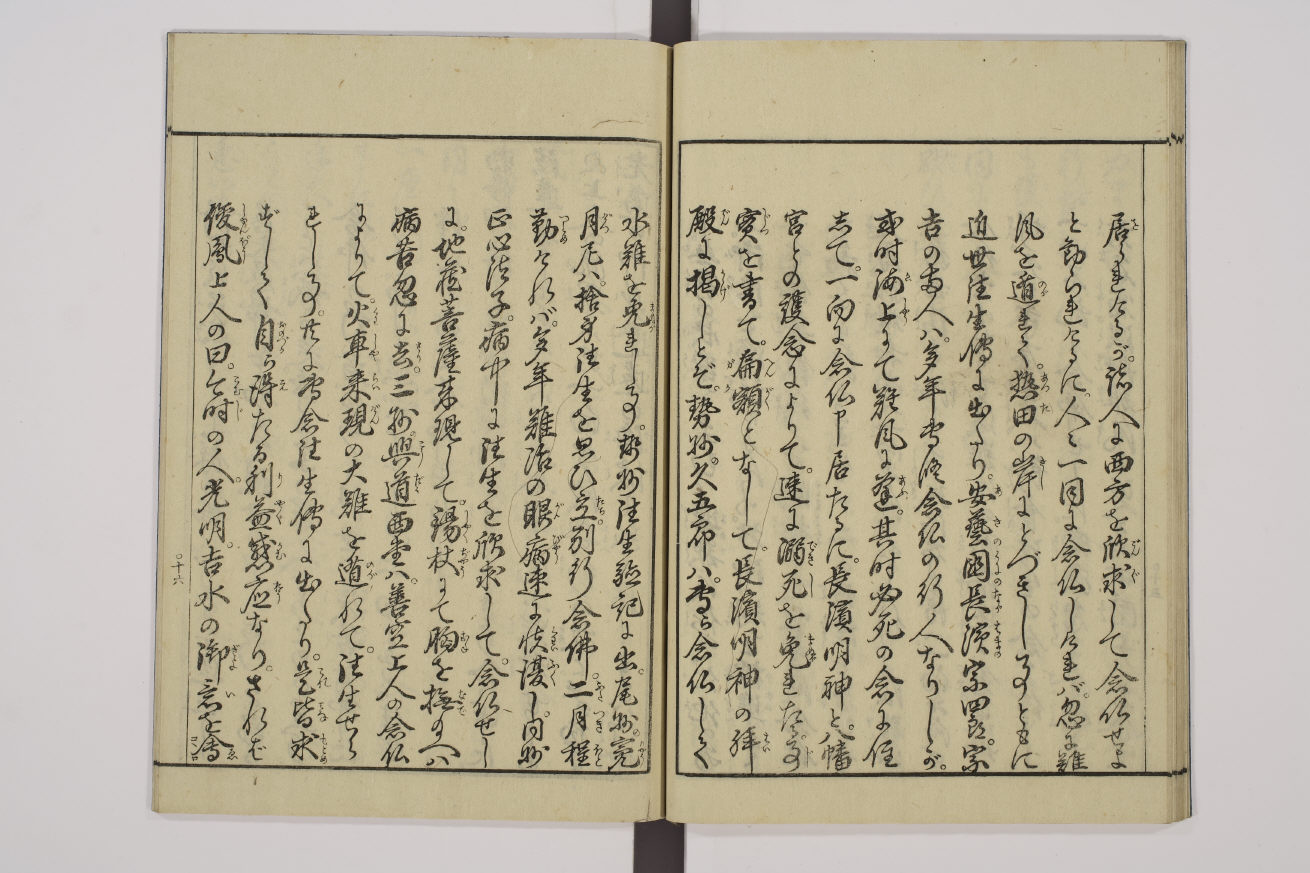 居られたるが。諸人に西方を欣求して念仏せよ
と勧られけるに。人々一同に念仏しければ。忽に難
風を遁れて。熱田の岸にとづきし事ともに
近世往生傳に出たり。安藝國長濱宗四郎。宗
吉の両人ハ。多年専修念仏の行人なりしが。
或時海上にて難風に逢。其時必死の念に住
して。一向に念仏申居たるに。長濱明神と。八幡
宮との護念によりて。速に溺死を免れたる事
實を書て。扁額となして。長濱明神の拝
殿に掲しとぞ。勢州。久五郎ハ。専ら念仏して
水難を免れし事。勢州往生驗記に出。尾州
月尼ハ。捨身往生を思ひ立別行念佛。二月程
勤けれバ。多年難治の眼病速に快復し。同州
正心法子。病中に往生を欣求して。念仏せし
に。地蔵菩薩来現して。錫杖にて胸を撫給へハ
病苦忽に去。三州與道西堂ハ。善空上人の念仏
によりて。火車来現の大難を遁れて。往生せら
れし事。共に専念往生傳に出たり。是皆求
ずして自ら得たる利益感應なり。されば
俊鳳上人の曰。今時の人。光明。吉水の御意を會
〇十六